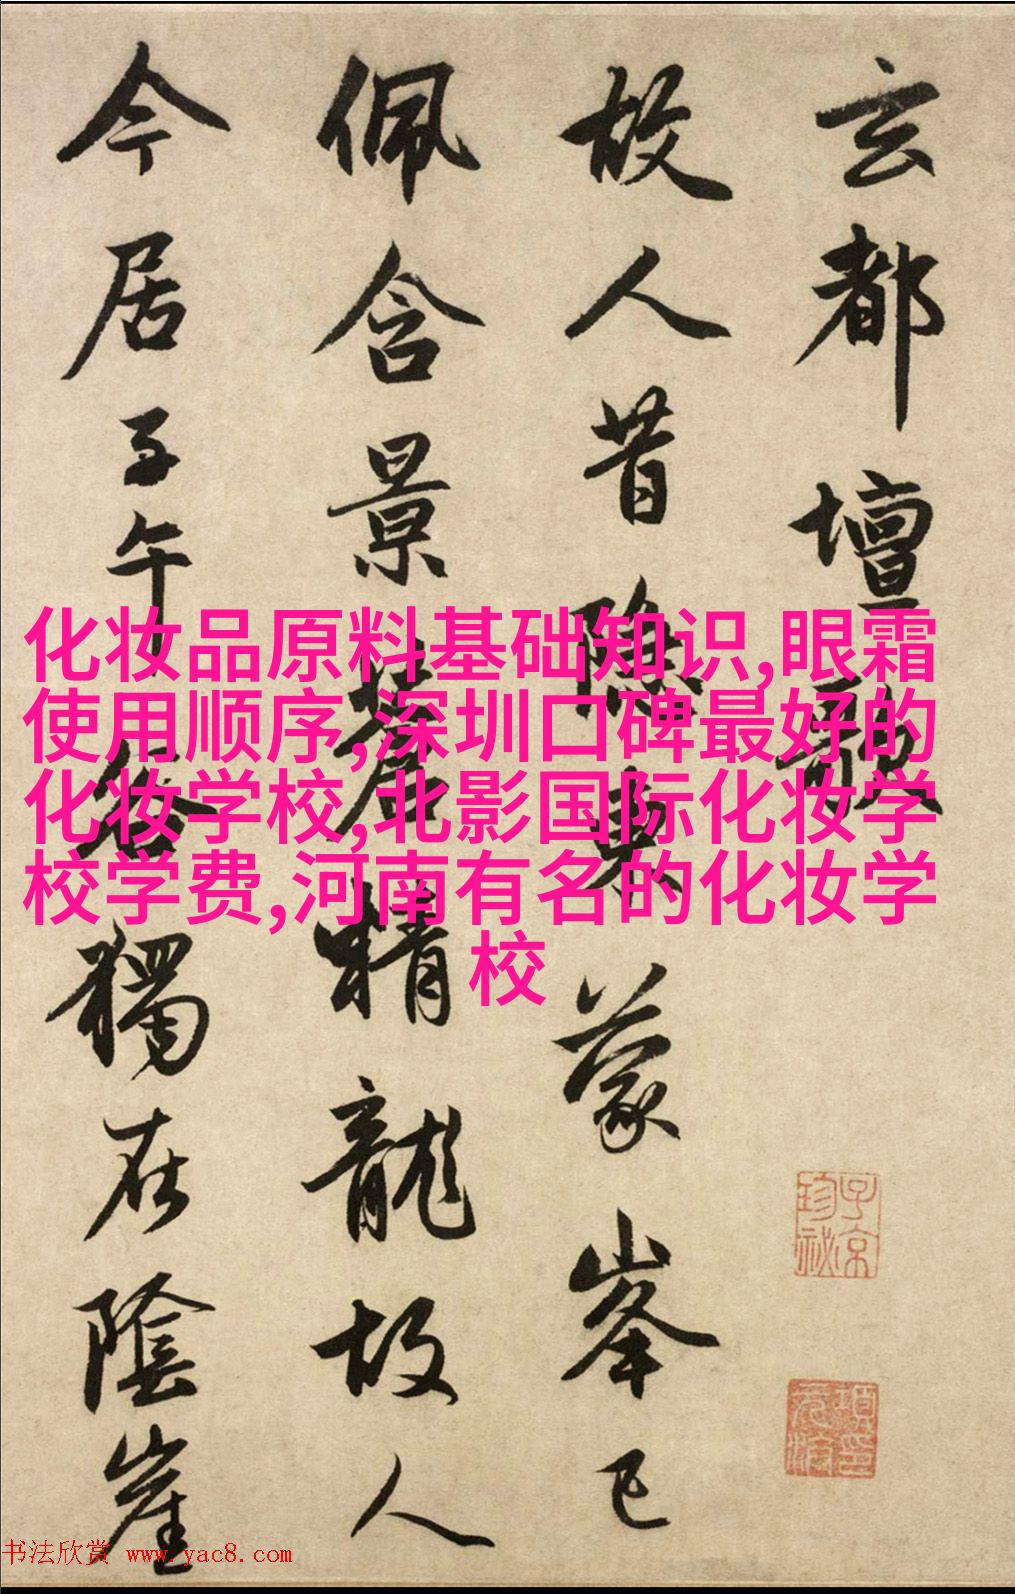 玄都壇歌
故人昔隱東蒙峯已
佩含景蒼精龍故人
今居子午谷獨在陰崖
化妆品原料基础知识,眼霜
使用顺序,深圳口碑最好的
化妆学校,北影国际化妆学
校学费,河南有名的化妆学
校
子京
珍祕
書法欣赏 www.yac8.com